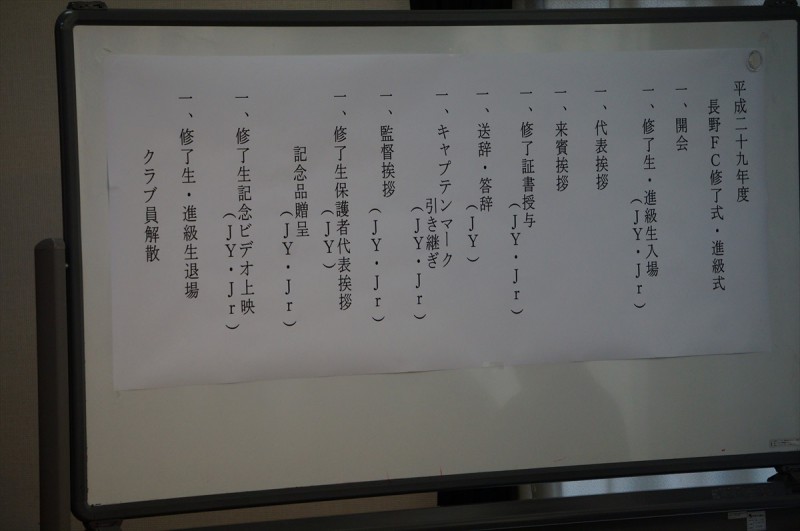 平成二十九年度
長野FC修了式・進級式
一、開会
一、修了生・進級生入場
(JY・Jr)
一、代表挨拶
一、来賓挨拶
一、修了証書授与
(JY・Jr)
一、送辞・答辞
(JY)
一、キャプテンマーク
引き継ぎ
(JY・Jr)
一、監督挨拶
(JY・Jr)
一、修了生保護者代表挨拶
(JY)
記念品贈呈
(JY・Jr)
一、修了生記念ビデオ上映
(JY・Jr)
一、修了生・進級生退場
クラブ員解散